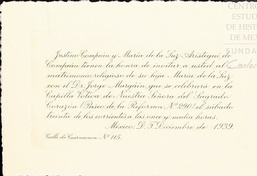 CENTRO
ESTUD
DE HIS
DE ME
FUNDA
Justino Compeán y María de la Luz Aristegui de
Compeán tienen la honra de invitar a usted al
matrimonio religioso de su hija María de la Luz
con el Dr. Jorge Marquín que se celebrará en la
Capilla Votiva de Nuestra Señora del Sagrado
Corazón (Paseo de la Reforma Nº 290) el sábado
treinta de los corrientes a las once y media horas.
México, D. F. Diciembre de 1939.
Calle de Cuernavaca Nº 115.